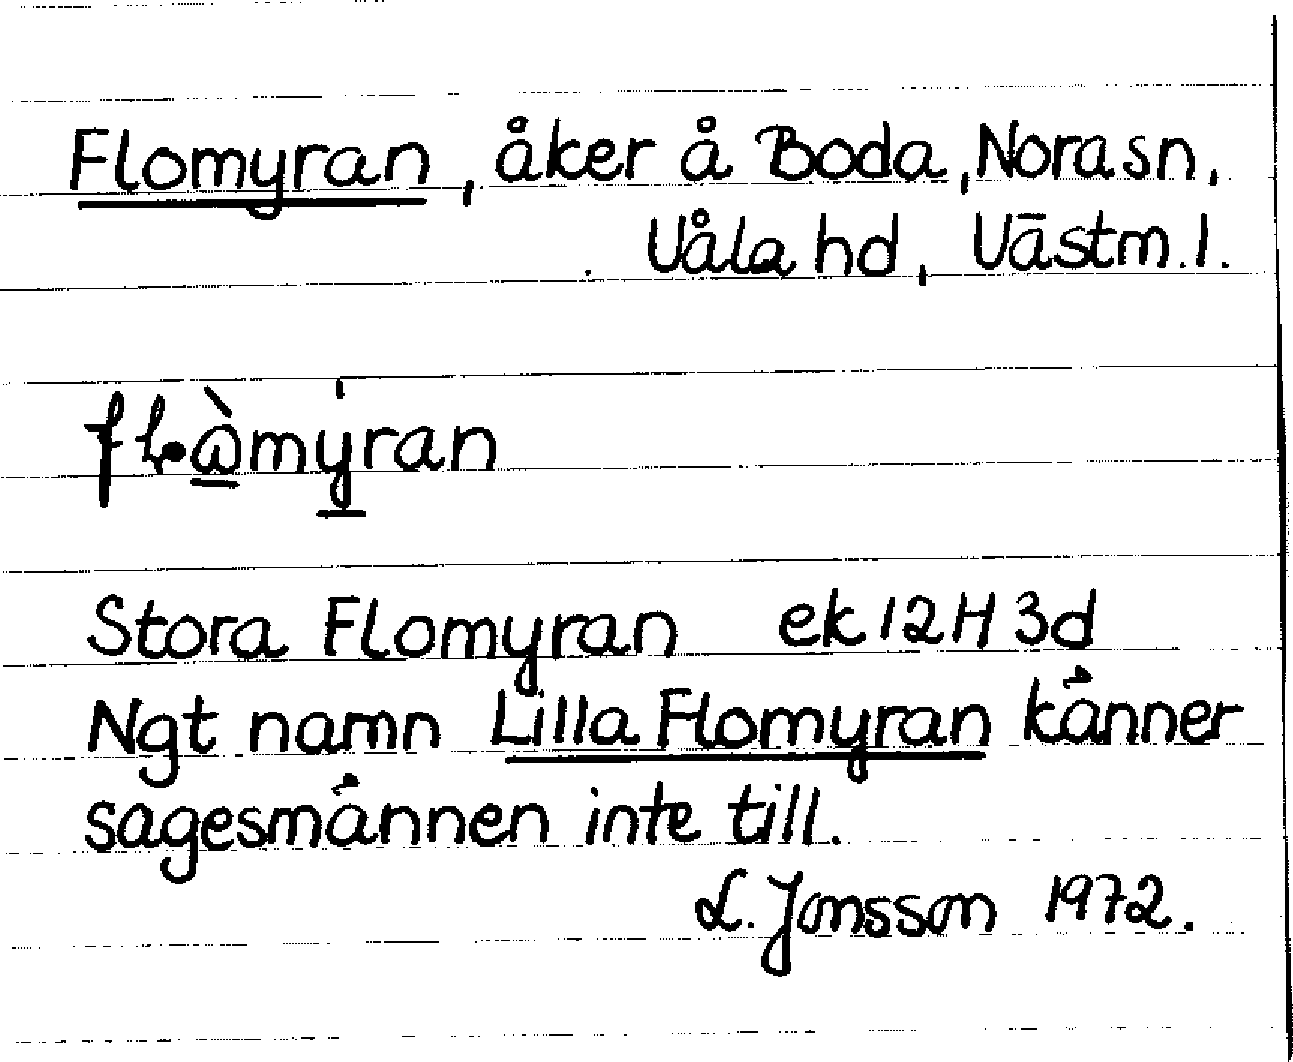 Flomyran, åker å Boda, Nora sn,
Våla hd, Västm. l.
Stora Flomyran ek 12H 3d
Ngt namn Lilla Flomyran känner
sagesmännen inte till.
L. Jonsson 1972.